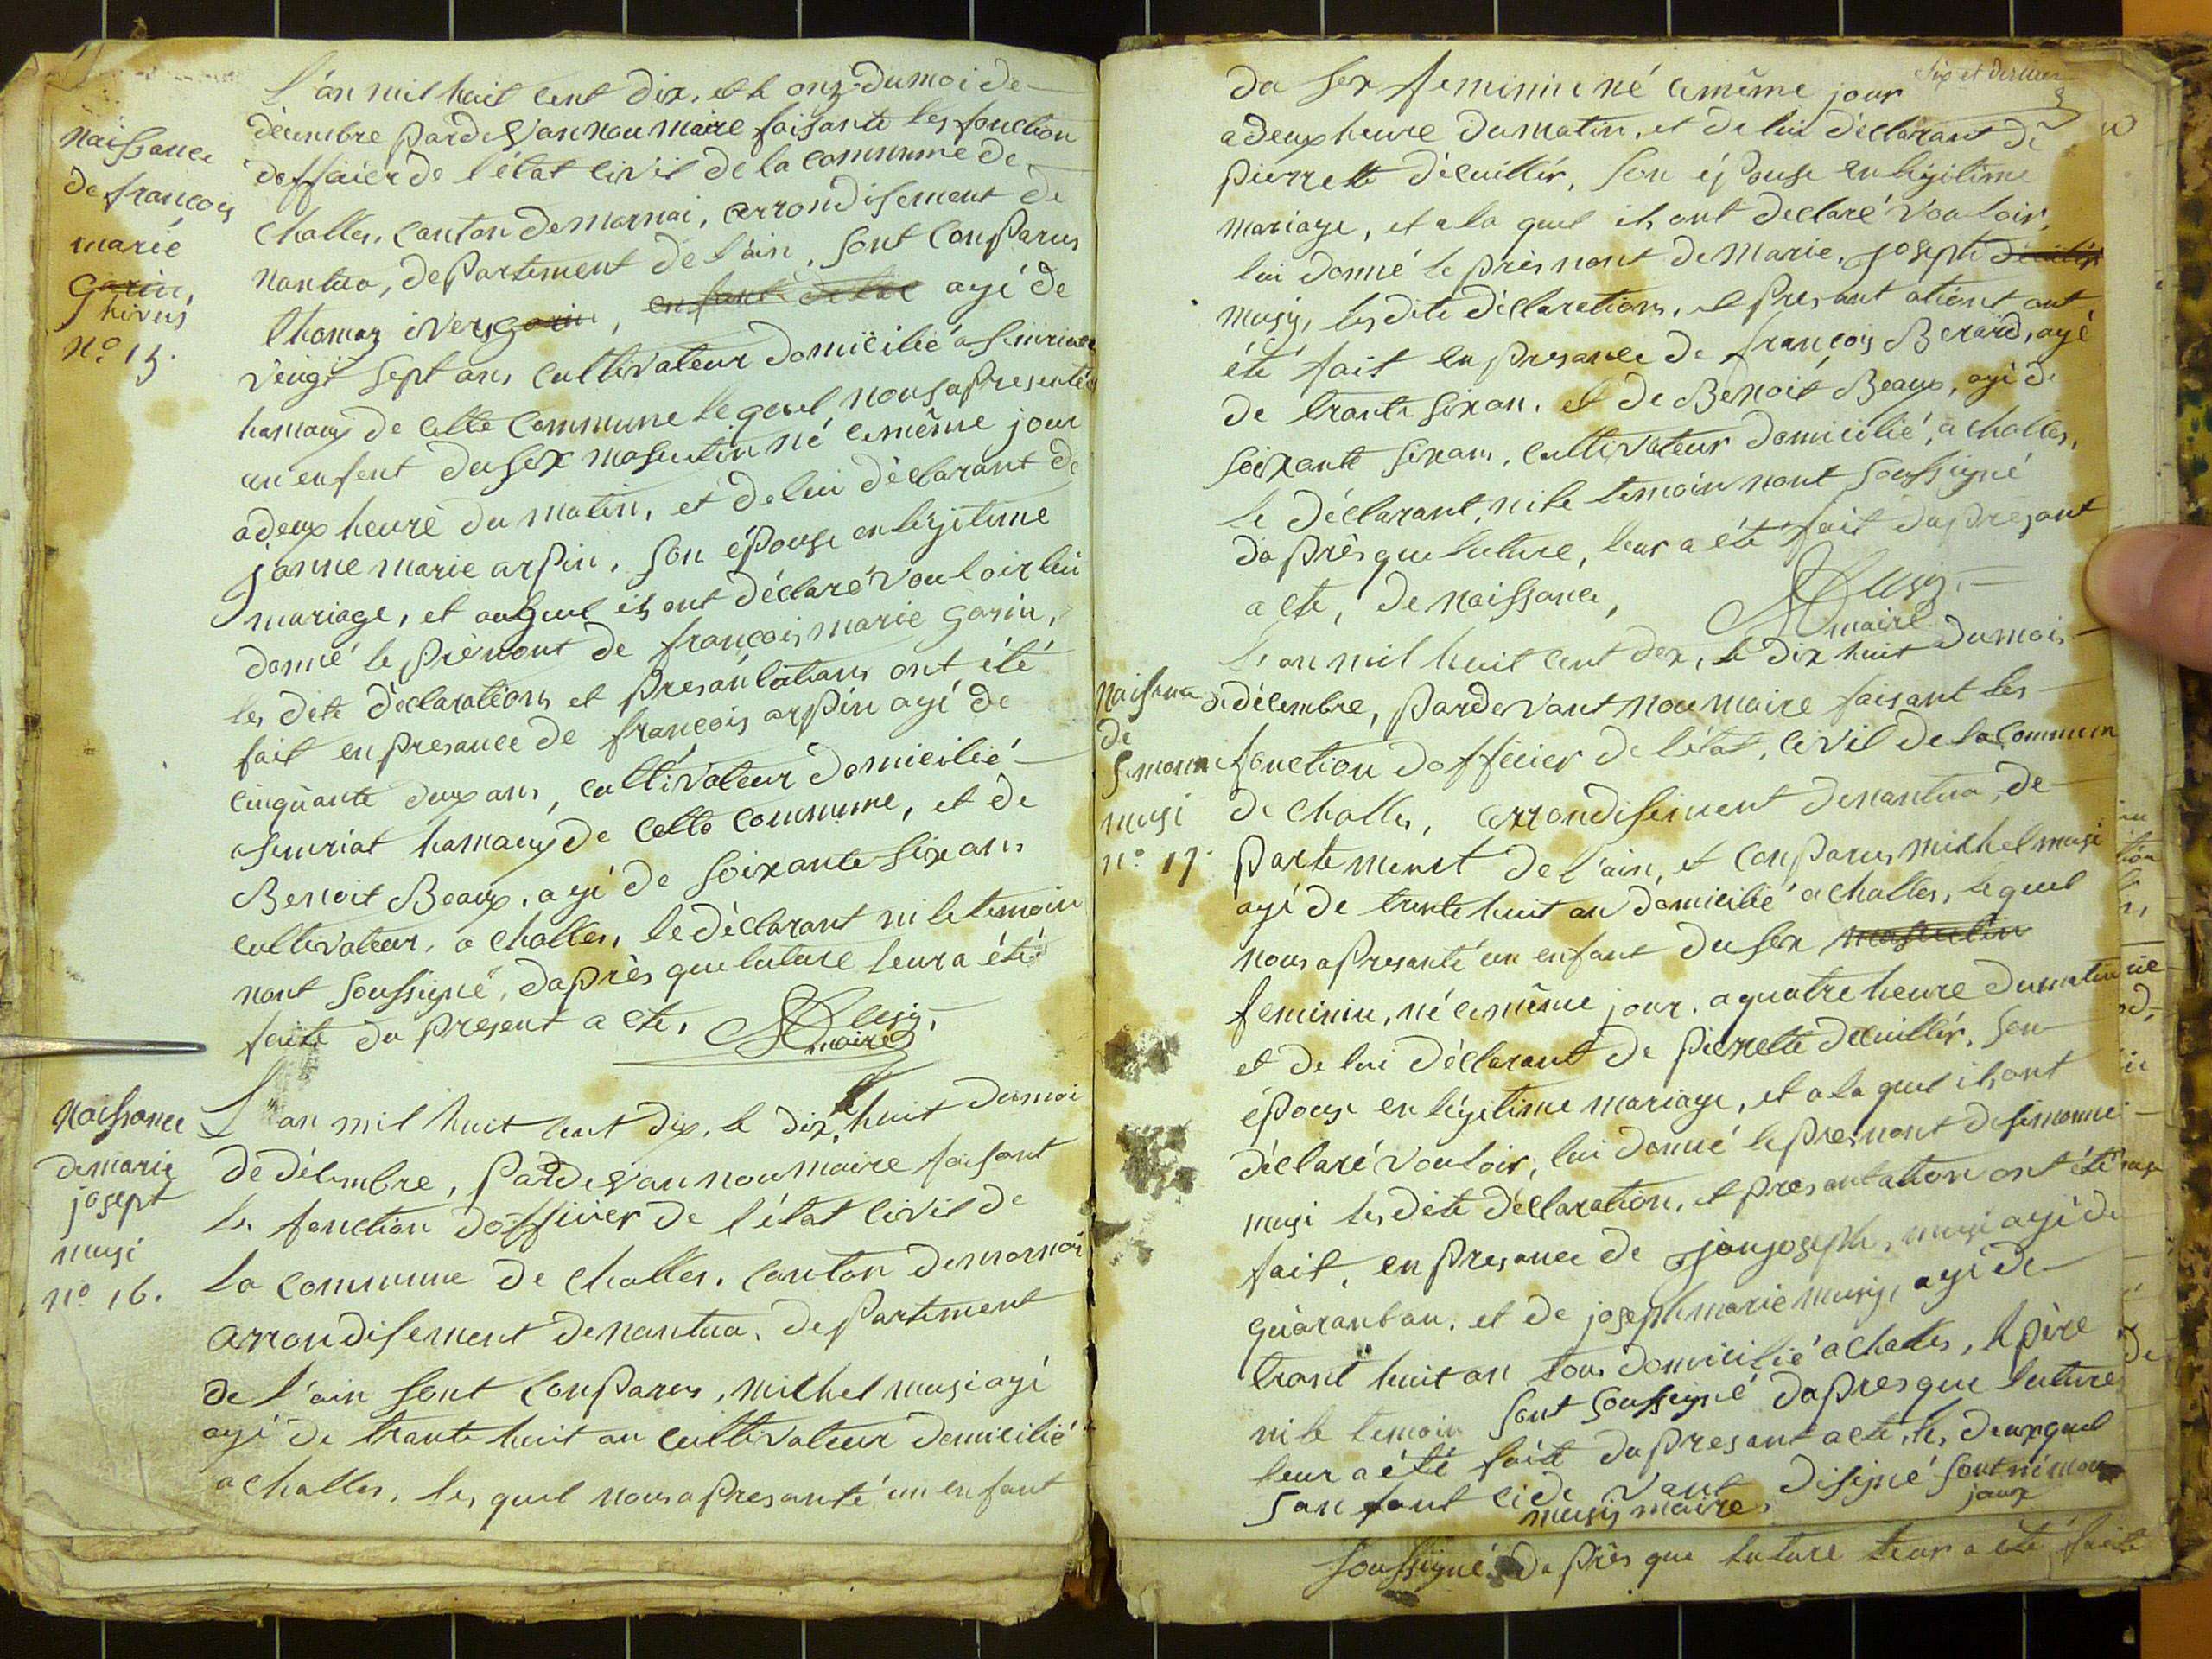 L'an mil huit cent dix, et le onz du moi de
décembre par deVan nou maire faisante les fonction
dofficier de l'état civil de la commune de
Challes, canton demornai, arrondisement de
nantua, departement de l'ain, sont conparus
thomas ivers gorin, enfant de lui agé de
veingt sept ans cultivateur domicilié a senriat
hamaux de cette commune le quel nous a presenté
un enfent du sex masculin né le même jour
a deux heure du matin, et de lui déclarant de
janne marie arpin, son épouse en légitime
mariage, et auquel ils ont déclaré vouloir lui
donné le prènont de françois marie gorin,
les dite déclarations et presantations ont été
fait en presance de françois arpin agé de
cinquante deux ans, cultivateur domicilié
a senriat hamaux de cette commune, et de
Benoit Beaux, agé de soixante six ans
cultivateur, a challes, le déclarant ni le temoin
nont soussigné, daprès que luture leur a été
faite du present acte,
musy
maire
naissance
de françois
marie
gorin,
hivers
n.º 15.
L'an mil huit cent dix, le dix huit du moi
de décembre, par devan nou maire faisant
les fonction dofficier de l'état civil de
la commune de challes, canton demornai
arrondisement denantua, departement
de l'ain sont conparus, michel musi agé
agé de trante huit an cultivateur domicilié
a challes, les quel nous a presanté un enfant
naissance
de marie
josept
musi
n.º 16.
six et dernier
du sex feminin né le même jour
a deux heure du matin, et de lui déclarant de
pierrette décuillér, son épouse en légitime
mariage, et a la quel ils ont declaré vouloir,
lui donné le près nont de marie, josepte
musy, les dite déclarations, et presant ationt ont
été fait en presance de françois Berard, agé
de trante six an, et de Benoit Beaux, agé de
soixante six ans, cultivateur domicilié, a challes,
le déclarant, ni le temoin nont soussigné
daprès que luture, leur a été fait du presant
acte, de naissance,
musy
maire
L'an mil huit cent dix, le dix huit du mois
de décembre, par devant nou maire faisant les
fonction dofficier de l'état, civil de la commun
de challes, arrondisement denantua, de
partement de l'ain, et conparus michel musi
agé de trente huit an domicilié a challes, le quel
nous a presanté un enfant du sex masculin
feminin, né le même jour, a quatre heure du matin
et de lui déclarant de pierrette décuillér, son
épouse en légitime mariage, et a la quel ils ont
déclaré vouloir, lui donné le presnont de simonne
musi les dite déclaration, et presantation ont été
fait, en presance de janjoseph, musi agé de
quarant an, et de joseph marie musy, agé de
trant huit an tous domicilié a challes, le père
ni le temoin sont soussigné dapres que luture
leur a été faite du presant acte, les deux quel
san fant ci de vant disigné sont ni mou
jaux
musy maire.
soussigné daprès que luture leur a été faite
naissance
de
simonne
musi
n.º 17.